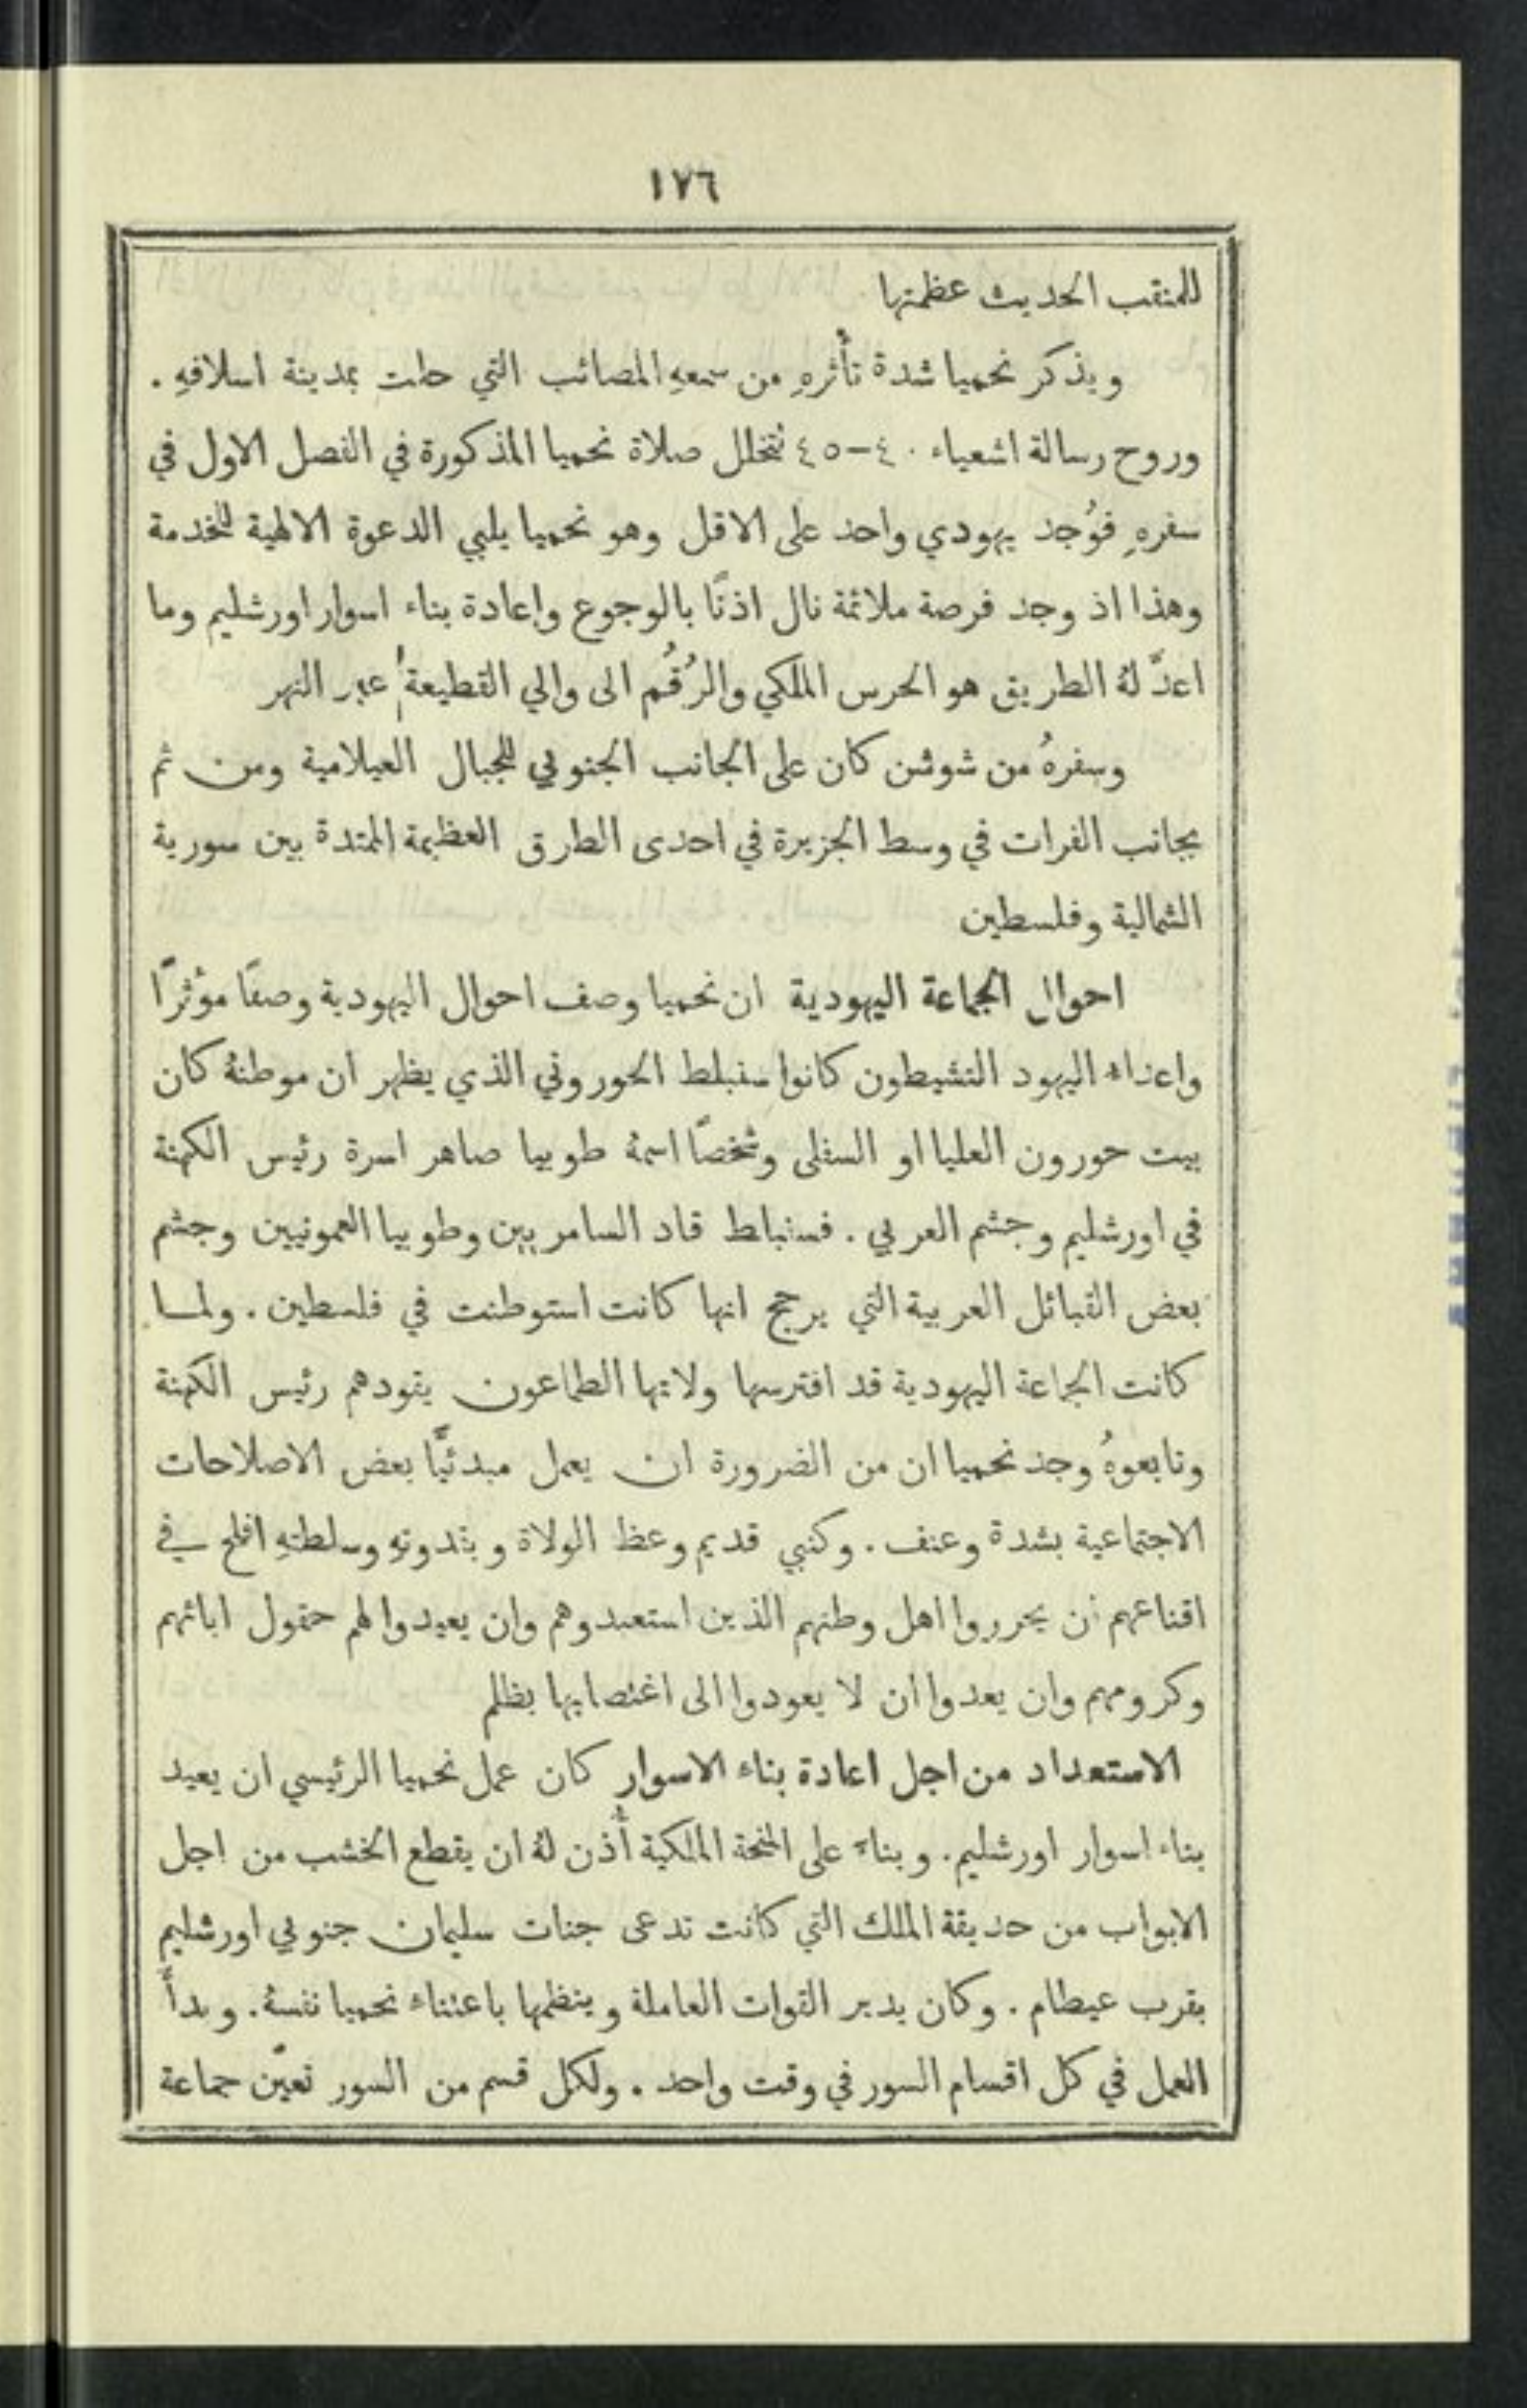 ١٧٦
للمنقب الحديث عظمتها
ويذكر نحميا شدة تأثرهِ من سمعهِ المصائب التي حلت بمدينة اسلافهِ .
وروح رسالة اشعياء ٤٠–٤٥ تتخلل صلاة نحميا المذكورة في الفصل الاول في
سفرهِ فوُجد يهودي واحد على الاقل وهو نحميا يلبي الدعوة الالهية للخدمة
وهذا اذ وجد فرصة ملائمة نال اذنًا بالوجوع واعادة بناء اسوار اورشليم وما
اعدَّ لهُ الطريق هو الحرس الملكي والرُقُم الى والي القطيعة عبر النهر
وسفرهُ من شوشن كان على الجانب الجنوبي للجبال العيلامية ومن ثم
بجانب الفرات في وسط الجزيرة في احدى الطرق العظيمة الممتدة بين سورية
الشمالية وفلسطين
احوال الجماعة اليهودية ان نحميا وصف احوال اليهودية وصفًا مؤثرًا
واعداء اليهود النشيطون كانوا سنبلط الحوروني الذي يظهر ان موطنهُ كان
بيت حورون العليا او السفلى وشخصًا اسمهُ طوبيا صاهر اسرة رئيس الكهنة
في اورشليم وجشم العربي . فسنباط قاد السامريين وطوبيا العمونيين وجشم
بعض القبائل العربية التي يرجح انها كانت استوطنت في فلسطين . ولما
كانت الجماعة اليهودية قد افترسها ولاتها الطماعون يقودهم رئيس الكهنة
وتابعوهُ وجد نحميا ان من الضرورة ان يعمل مبدئيًّا بعض الاصلاحات
الاجتماعية بشدة وعنف . وكنبي قديم وعظ الولاة وبقدوتهِ وسلطتهِ افلح في
اقناعهم ان يحرروا اهل وطنهم الذين استعبدوهم وان يعيدوا لهم حقول ابائهم
وكرومهم وان يعدوا ان لا يعودوا الى اغتصابها بظلم
الاستعداد من اجل اعادة بناء الاسوار كان عمل نحميا الرئيسي ان يعيد
بناء اسوار اورشليم . وبناءً على المنحة الملكية أُذن لهُ ان يقطع الخشب من اجل
الابواب من حديقة الملك التي كانت تدعى جنات سليمان جنوبي اورشليم
بقرب عيطام . وكان يدير القوات العاملة وينظمها باعتناء نحميا نفسهُ . وبدأ
العمل في كل اقسام السور في وقت واحد . ولكل قسم من السور تعيّن جماعة